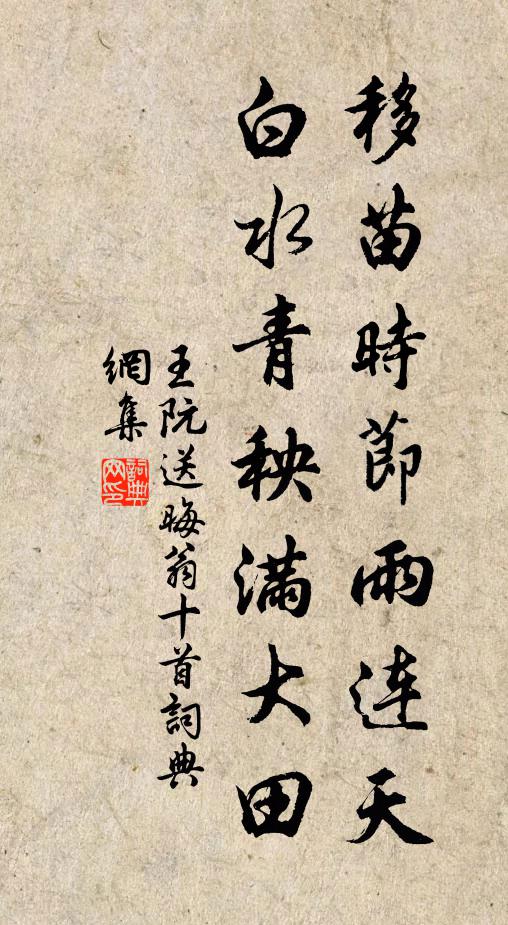 移苗時節雨連天
白水青秧滿大田
王阮送晦翁十首詞典
網集
詞典
网印